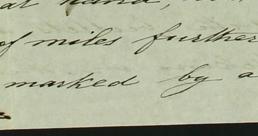 at hand,
of miles further
marked by a